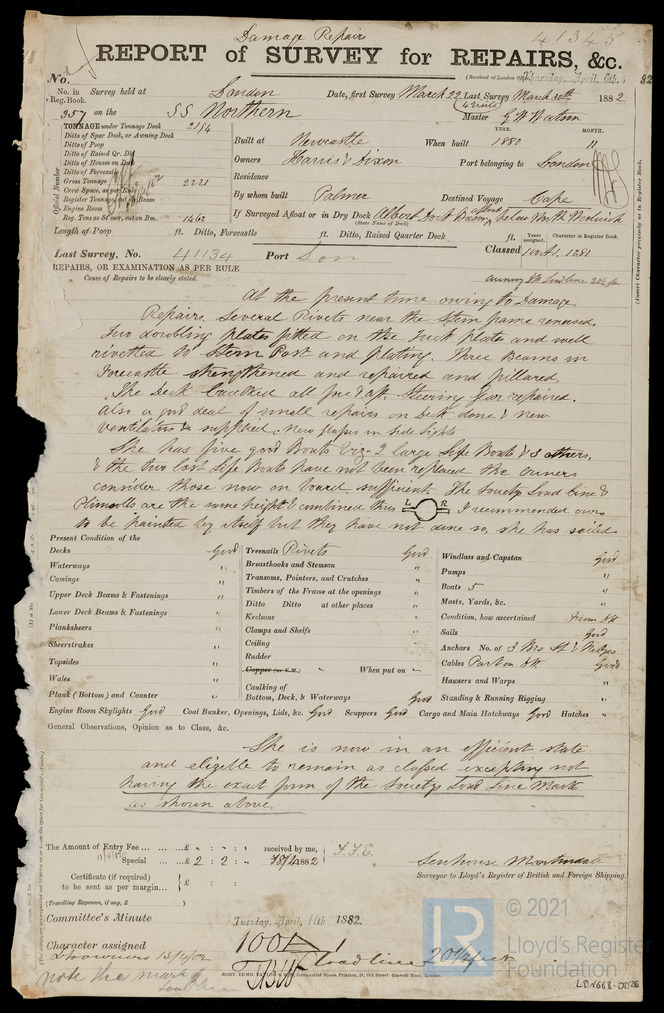 Damage Repairs
41345
REPORT of SURVEY for REPAIRS, &c.
No.
(Received at London Office, Tuesday, April, 4th. 82
No. in Reg. Book.
Survey held at London Date, first Survey March 22 Last Survey March 30th 1882
4 visits
357 on the SS Northern Master
TONNAGE under Tonnage Deck 2114
Ditto of Spar Deck, or Awning Deck
Ditto of Poop
Ditto of Raised Qr. Dk.
Ditto of Houses on Deck
Ditto of Forecastle
Gross Tonnage 2221
Crew Space, as per Rule
Register Tonnage, cut on Beam
Engine Room
Reg. Tons as St'mer, cut on Bm. 1462
Official Number
YEAR. MONTH.
Built at Newcastle When built 1880 "
Owners Harris & Dixon Port belonging to London
Residence
By whom built Palmer Destined Voyage Cape
If Surveyed Afloat or in Dry Dock Albert Dock Basin, afloat below North Woolwich
(State Name of Dock.)
Length of Poop ft. Ditto, Forecastle ft. Ditto, Raised Quarter Deck ft.
Years assigned. Character in Register Book.
Last Survey, No. 41134 Port Lon Classed 100A1. 1281
REPAIRS, OR EXAMINATION AS PER RULE
Cause of Repairs to be clearly stated.
At the present time owing to Damage.
Repairs. Several Rivets near the Stern frame renewed.
Two doubling plates fitted on the Tuck plate and well
rivetted to Stern Post and plating. Three Beams in
Forecastle strengthened and repaired and pillared,
The Deck Caulked all fore & aft. Steering gear repaired.
Also a good deal of small repairs on Deck done & new
ventilators & supplied. New glasses in side lights
She has five good Boats viz- 2 large Life Boats & 3 others,
& the two lost Life Boats have not been replaced the owners
consider those now on board sufficient. The Society Load Line &
Plimsolls are the same height & combined thus L R I recommended ours
to be painted by itself but they have not done so, she has sailed.
Present Condition of the
Decks Good
Waterways "
Comings "
Upper Deck Beams & Fastenings "
Lower Deck Beams & Fastenings "
Planksheers "
Sheerstrakes "
Topsides "
Wales "
Plank (Bottom) and Counter "
Treenails Rivets Good
Breasthooks and Stemson "
Transoms, Pointers, and Crutches "
Timbers of the Frame at the openings "
Ditto Ditto at other places "
Keelsons "
Clamps and Shelfs "
Ceiling "
Rudder "
Copper (or Y.M.) " When put on "
Caulking of
Bottom, Deck, & Waterways Good
Windlass and Capstan Good
Pumps "
Boats 5 "
Masts, Yards, &c. "
Condition, how ascertained From Dk
Sails Good
Anchors No. of 3 Brs St & Kedges
Cables Part on Dk Good
Hawsers and Warps "
Standing & Running Rigging "
Engine Room Skylights Good Coal Bunker, Openings, Lids, &c. Good Scuppers Good Cargo and Main Hatchways Good Hatches "
General Observations, Opinion as to Class, &c.
She is now in an efficient state
and eligible to remain as classed excepting not
having the exact form of the Society Load Line Mark
as shown above.
The Amount of Entry Fee ... ...£ " : " : " received by me,
Special ... ...£ 2 : 2 : " 1882
Certificate (if required) to be sent as per margin... £ :
(Travelling Expenses, if any, £ )
Senhouse Martindale
Surveyor to Lloyd's Register of British and Foreign Shipping.
Committee's Minute Tuesday, April, 11th 1882.
Character assigned 100A1
Load line 20 ft
note the mark of
© 2021
Lloyd's Register
Foundation
LDN668-0026